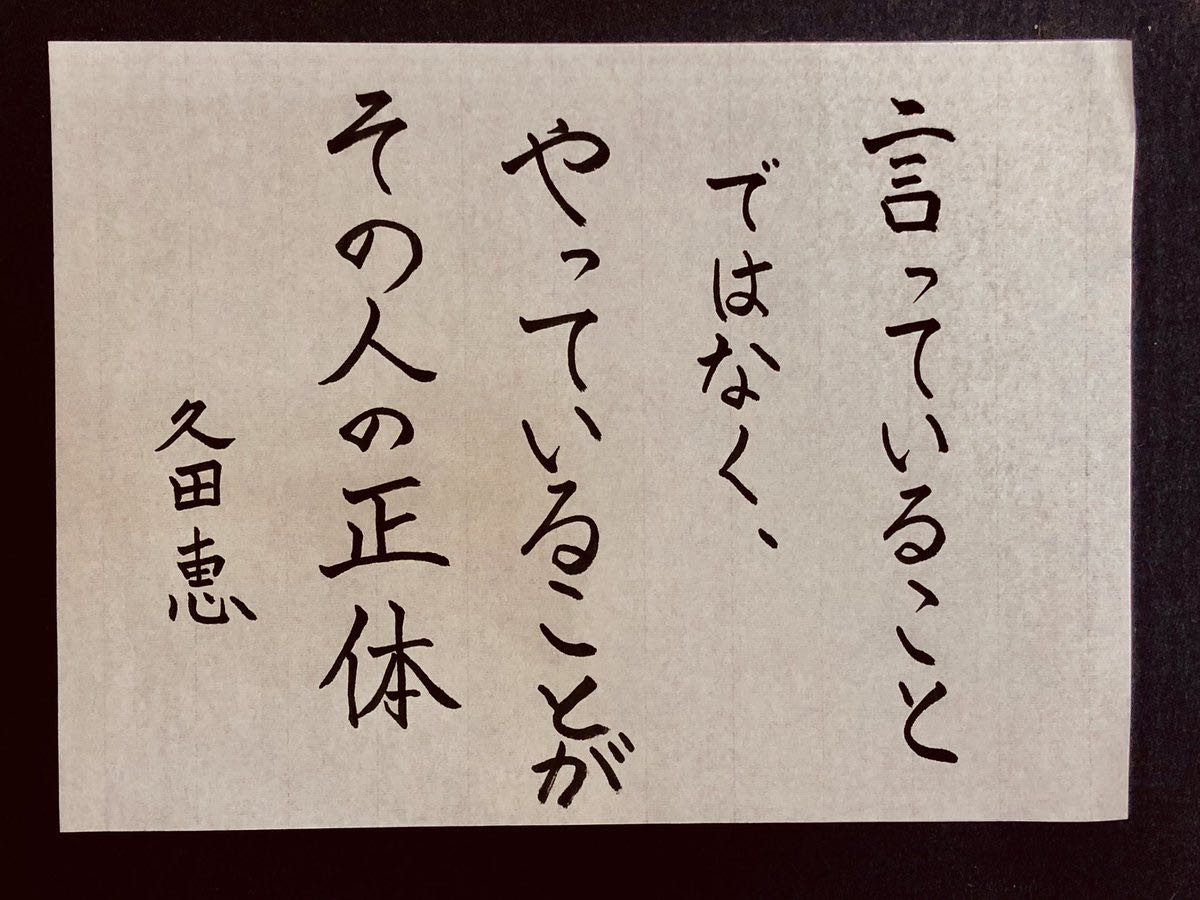 言っていること
ではなく、
やっていることが
その人の正体
久田恵